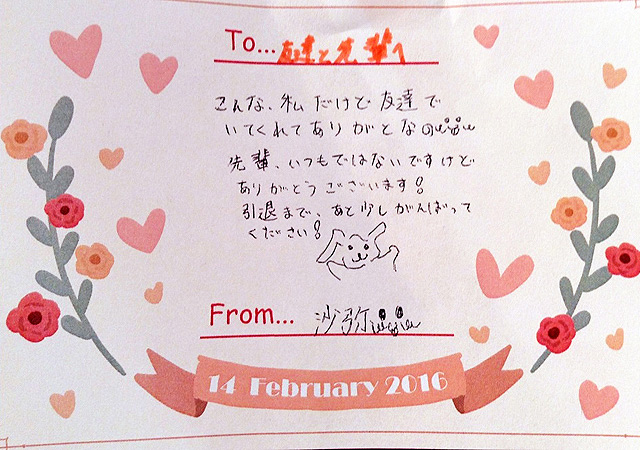 To... 友達と先輩へ
こんな、私だけど友達で
いてくれてありがとなの
先輩、いつもではないですけど
ありがとうございます!
引退まで、あと少しがんばって
ください!
From... 沙弥
14 February 2016